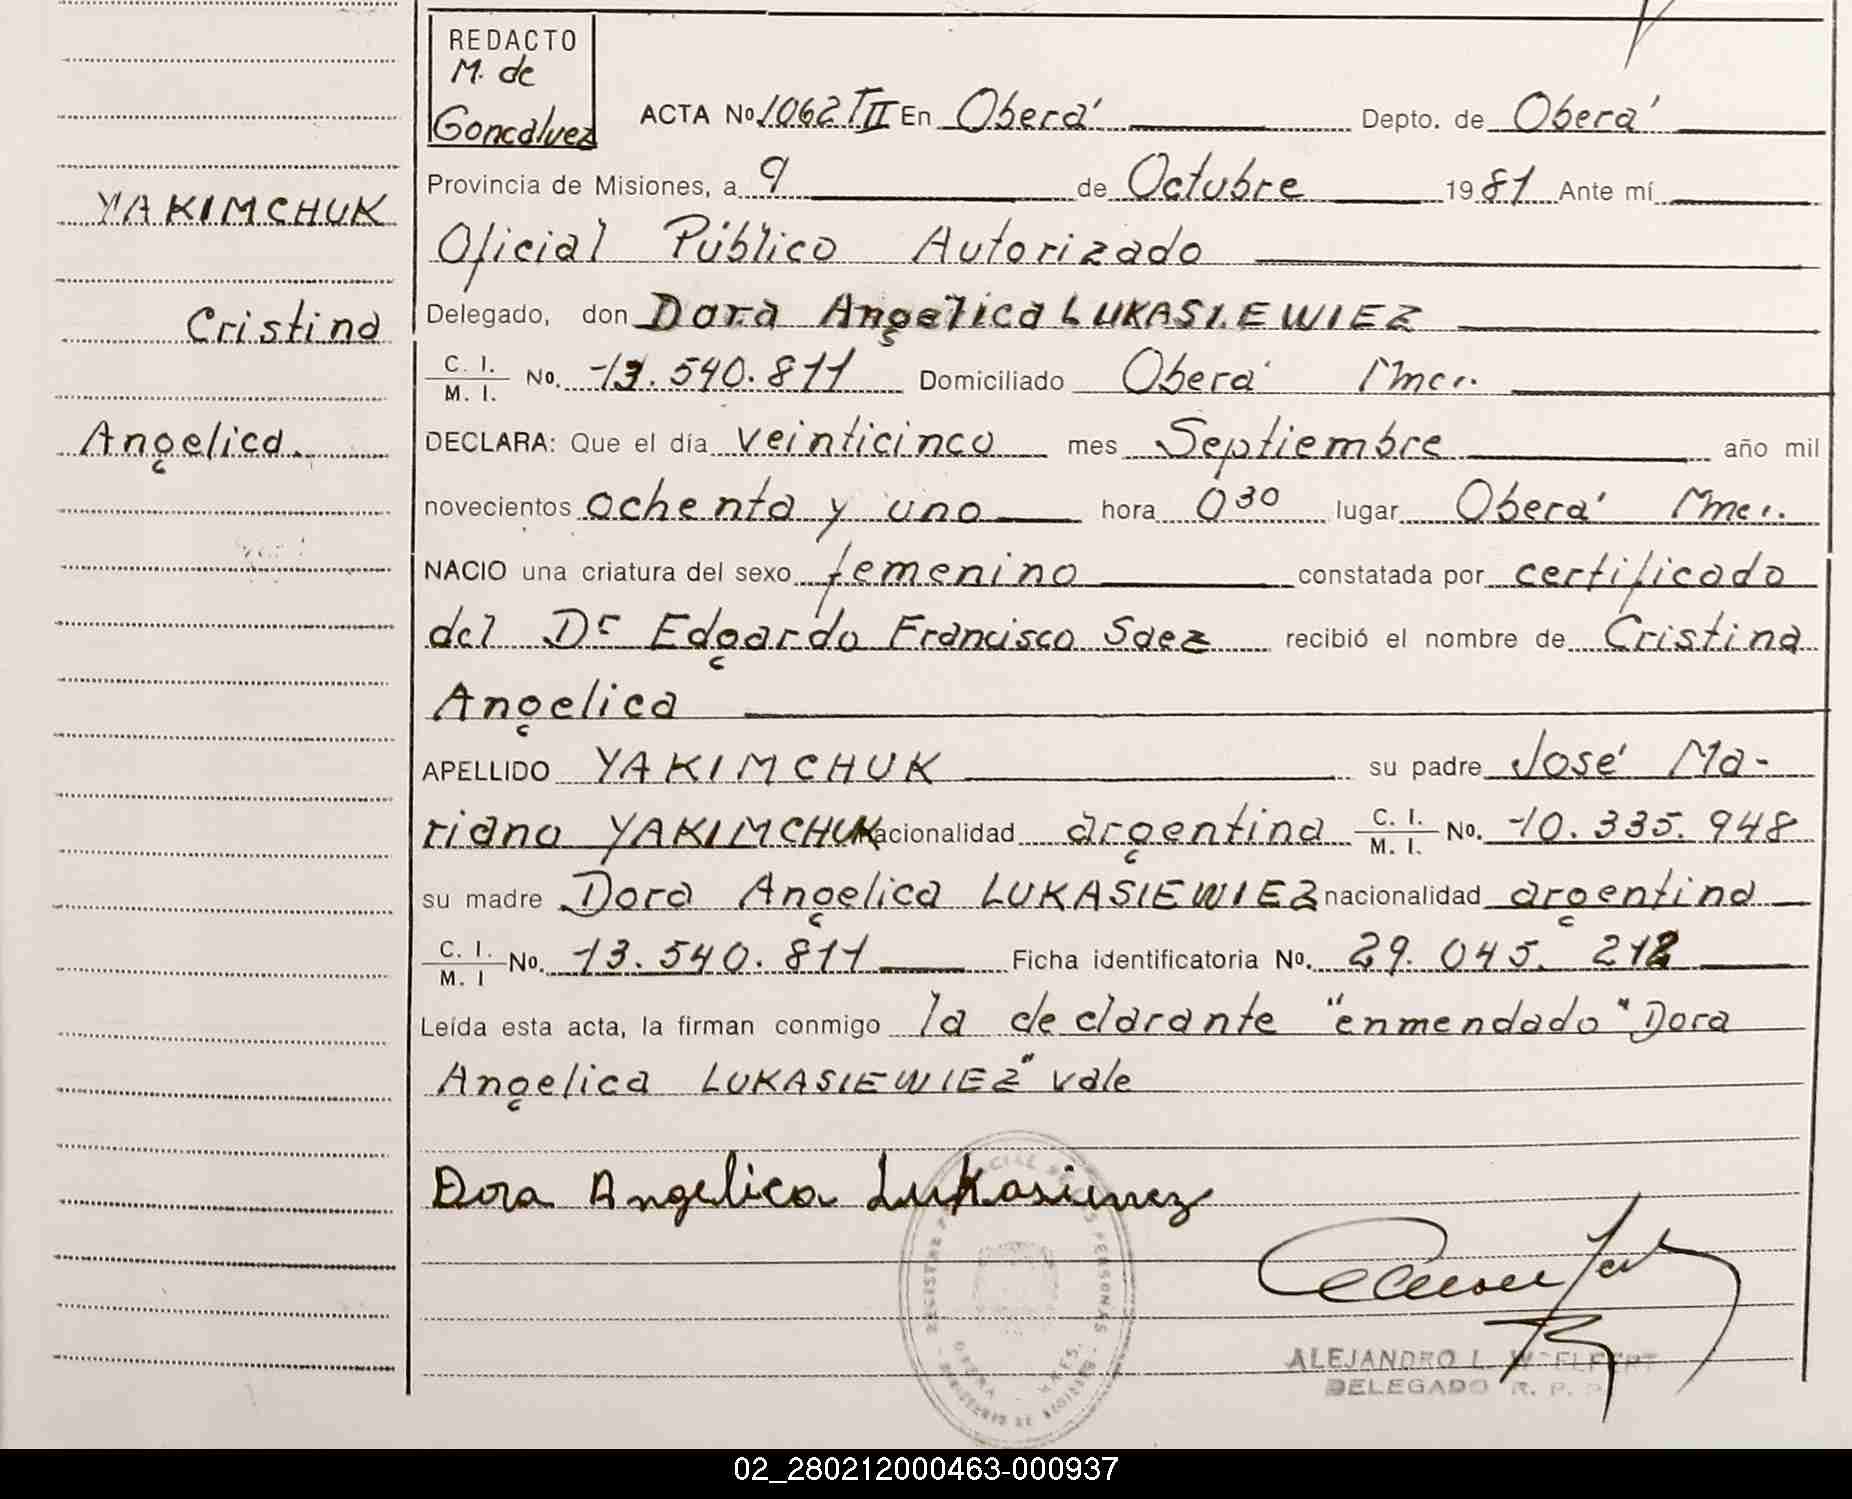 REDACTO
M. de
Goncalvez
YAKIMCHUK
Cristina
Angelica.
ACTA No 1062 TII En Oberá Depto. de Oberá
Provincia de Misiones, a 9 de Octubre 1981 Ante mí
Oficial Público Autorizado
Delegado, don Dora Angelica LUKASIEWIEZ
C. I. / M. I. No. 13.540.811 Domiciliado Oberá Mnes.
DECLARA: Que el día veinticinco mes Septiembre año mil
novecientos ochenta y uno hora 0 30 lugar Oberá Mnes.
NACIO una criatura del sexo femenino constatada por certificado
del Dr Edgardo Francisco Saez recibió el nombre de Cristina
Angelica
APELLIDO YAKIMCHUK su padre José Ma-
riano YAKIMCHUK nacionalidad argentina C. I. / M. I. No. 10.335.948
su madre Dora Angelica LUKASIEWIEZ nacionalidad argentina
C. I. / M. I No. 13.540.811 Ficha identificatoria No. 29.045.212
Leída esta acta, la firman conmigo la declarante "enmendado" Dora
Angelica LUKASIEWIEZ" vale
Dora Angelica Lukasiewiez
ALEJANDRO L.
DELEGADO R. P. P.
02_280212000463-000937